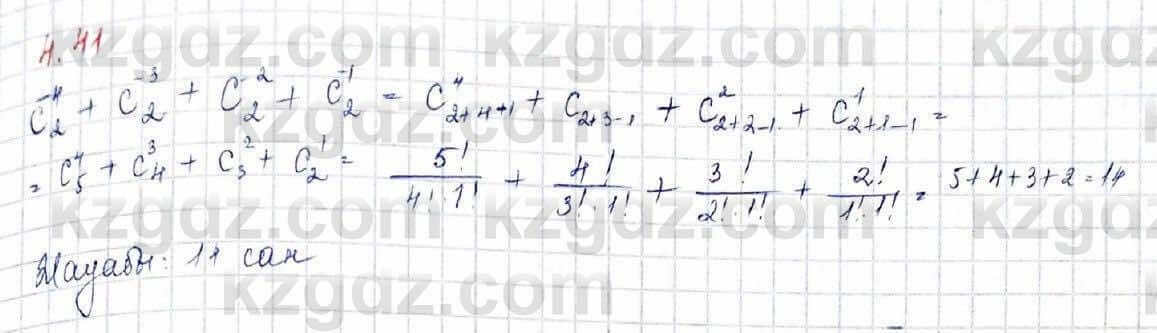 4.41
C̄₂⁴ + C̄₂³ + C̄₂² + C̄₂¹ = C⁴₂₊₄₊₁ + C₂₊₃₋₁ + C²₂₊₂₋₁ + C¹₂₊₁₋₁ =
= C₅⁴ + C₄³ + C₃² + C₂¹ = 5!/(4!·1!) + 4!/(3!·1!) + 3!/(2!·1!) + 2!/(1!·1!) = 5+4+3+2=14
Жауабы: 14 сан
kzgdz.com kzgdz.com kzgdz.com
kzgdz.com kzgdz.com kzgdz.com
kzgdz.com